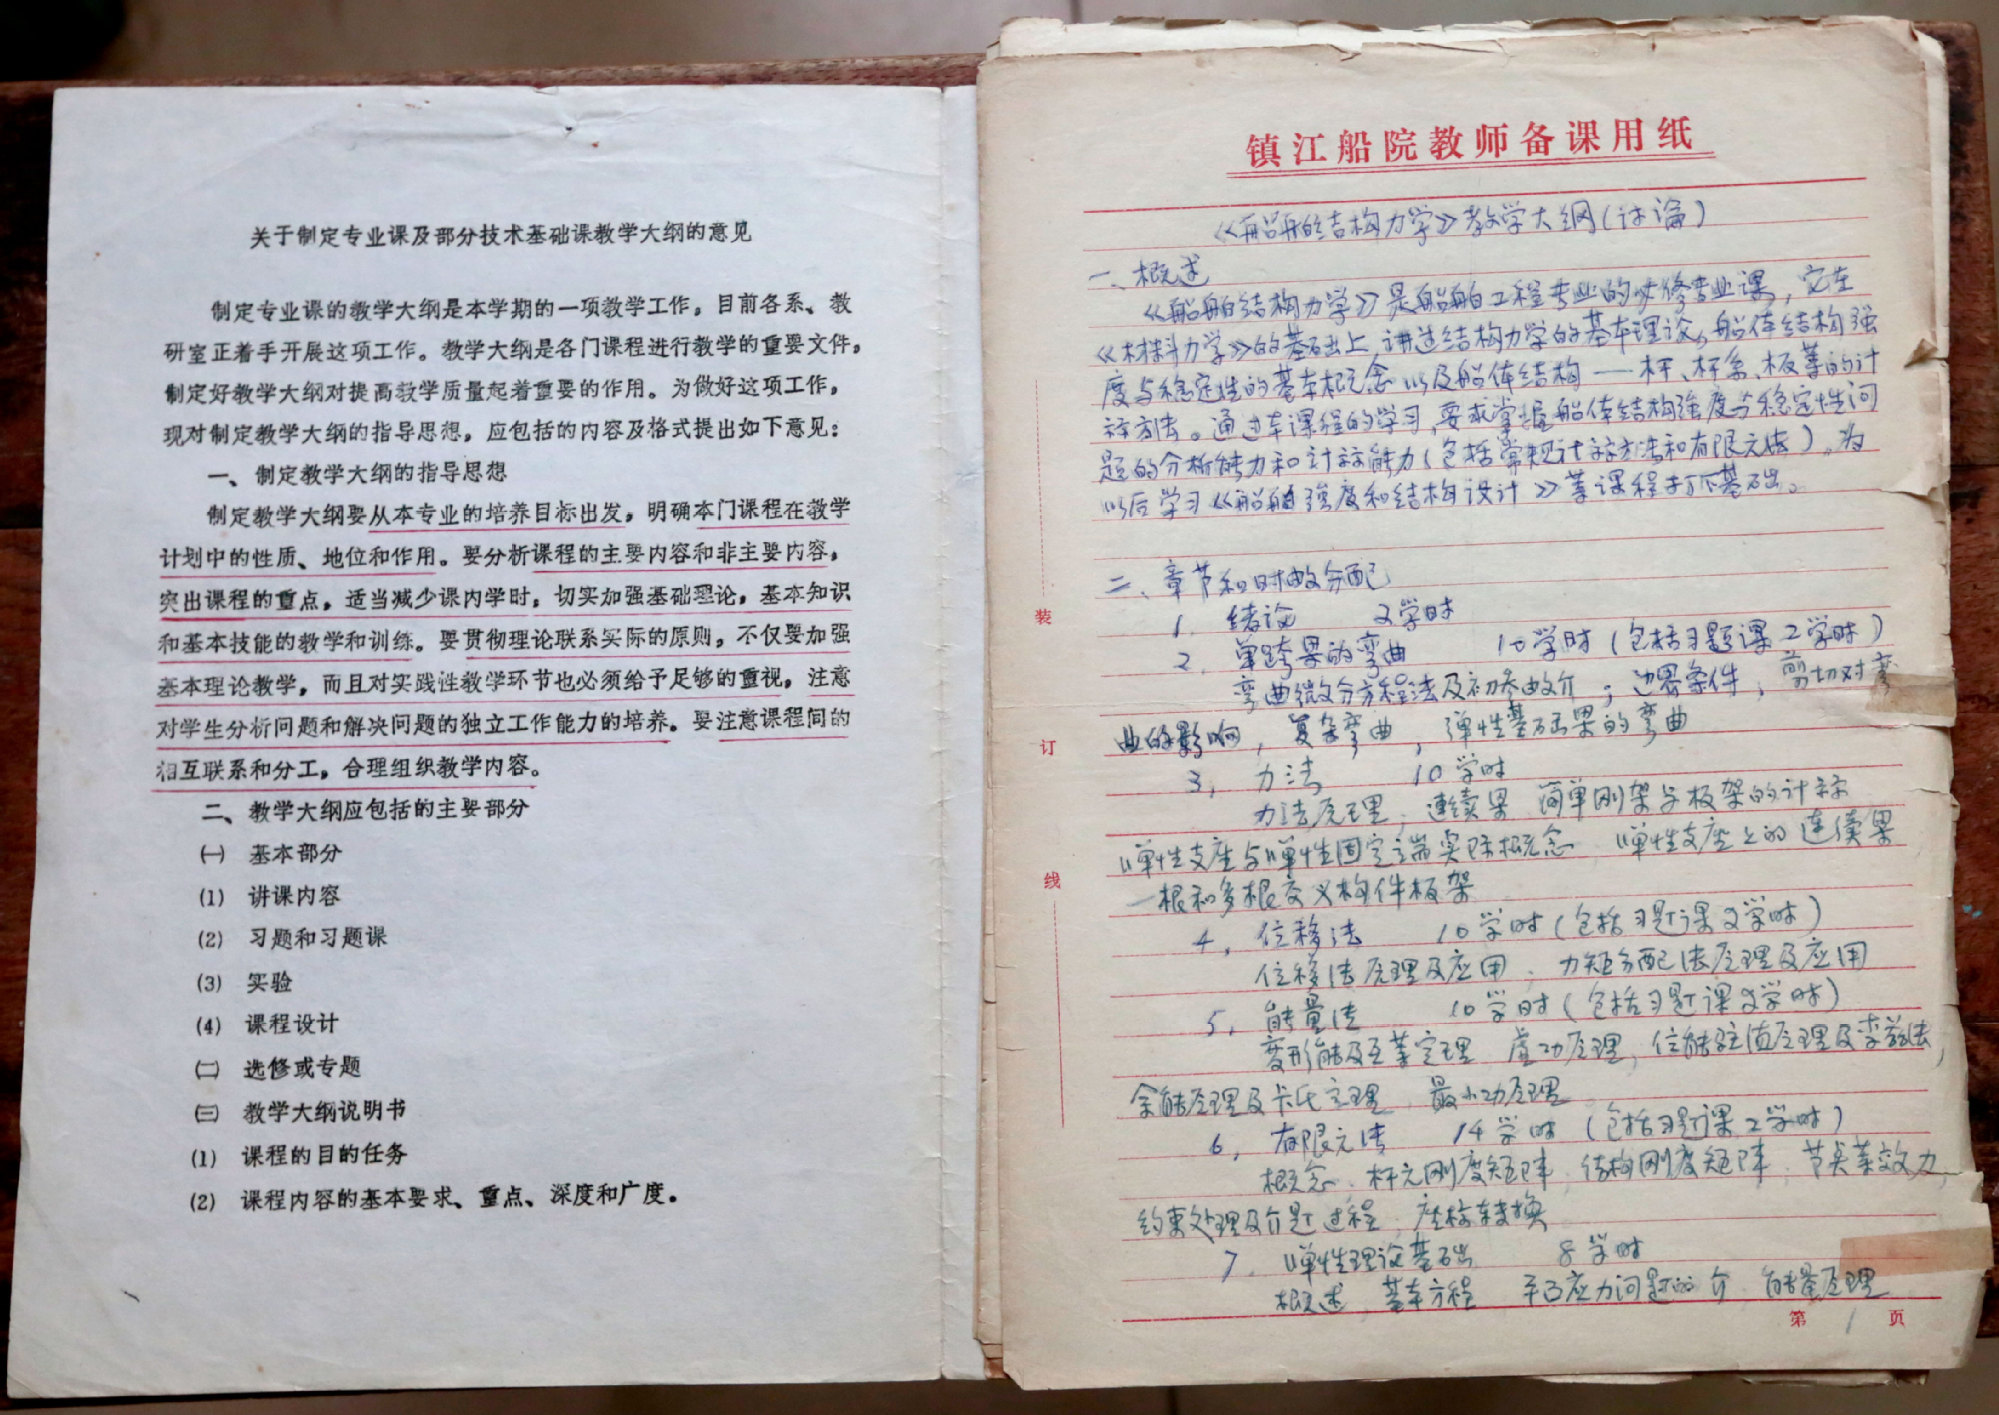 关于制定专业课及部分技术基础课教学大纲的意见
制定专业课的教学大纲是本学期的一项教学工作，目前各系、教
研室正着手开展这项工作。教学大纲是各门课程进行教学的重要文件，
制定好教学大纲对提高教学质量起着重要的作用。为做好这项工作，
现对制定教学大纲的指导思想，应包括的内容及格式提出如下意见：
一、制定教学大纲的指导思想
制定教学大纲要从本专业的培养目标出发，明确本门课程在教学
计划中的性质、地位和作用。要分析课程的主要内容和非主要内容，
突出课程的重点，适当减少课内学时，切实加强基础理论，基本知识
和基本技能的教学和训练。要贯彻理论联系实际的原则，不仅要加强
基本理论教学，而且对实践性教学环节也必须给予足够的重视，注意
对学生分析问题和解决问题的独立工作能力的培养。要注意课程间的
相互联系和分工，合理组织教学内容。
二、教学大纲应包括的主要部分
㈠ 基本部分
⑴ 讲课内容
⑵ 习题和习题课
⑶ 实验
⑷ 课程设计
㈡ 选修或专题
㈢ 教学大纲说明书
⑴ 课程的目的任务
⑵ 课程内容的基本要求、重点、深度和广度。
镇江船院教师备课用纸
《船舶结构力学》教学大纲（讨论）
一、概述
《船舶结构力学》是船舶工程专业的必修专业课，它在
《材料力学》的基础上讲述结构力学的基本理论，船体结构强
度与稳定性的基本概念以及船体结构——杆、杆系、板等的计
算方法。通过本课程的学习，要求掌握船体结构强度与稳定性问
题的分析能力和计算能力（包括常规计算方法和有限元法），为
以后学习《船舶强度和结构设计》等课程打下基础。
二、章节和时数分配
1. 绪论 2学时
2. 单跨梁的弯曲 10学时（包括习题课2学时）
弯曲微分方程法及初参数介；边界条件，剪切对弯
曲的影响，复杂弯曲，弹性基础梁的弯曲
3, 力法 10学时
力法原理，连续梁 简单刚架与板架的计算
弹性支座与弹性固定端实际概念，弹性支座上的连续梁
一根和多根交叉构件板架
4, 位移法 10学时（包括习题课2学时）
位移法原理及应用，力矩分配法原理及应用
5, 能量法 10学时（包括习题课2学时）
变形能及互等定理，虚功原理，位能驻值原理及李兹法，
余能原理及卡氏定理，最小功原理
6, 有限元法 14学时（包括习题课2学时）
概念，杆元刚度矩阵，结构刚度矩阵，节点等效力，
约束处理及介题过程，座标转换
7. 弹性理论基础 8学时
概述，基本方程 平面应力问题的介，能量原理
装
订
线
第 1 页